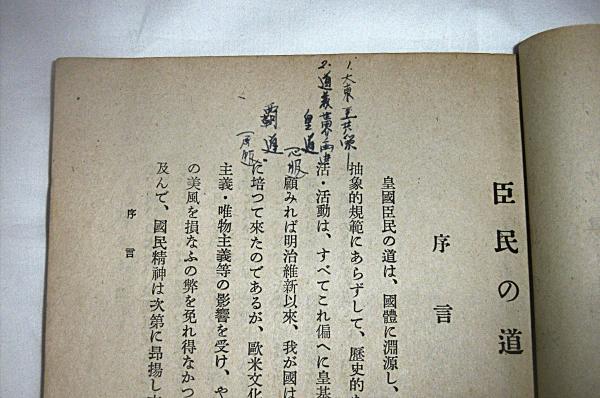 臣民の道
序言
皇國臣民の道は、國體に淵源し、
抽象的規範にあらずして、歷史的
活・活動は、すべてこれ偏へに皇基
顧みれば明治維新以來、我が國は
に培つて來たのであるが、歐米文化
主義・唯物主義等の影響を受け、や
の美風を損なふの弊を免れ得なかつ
及んで、國民精神は次第に昂揚し
序言
1.大東亞共榮
2.道義世界
皇道
心服
覇道